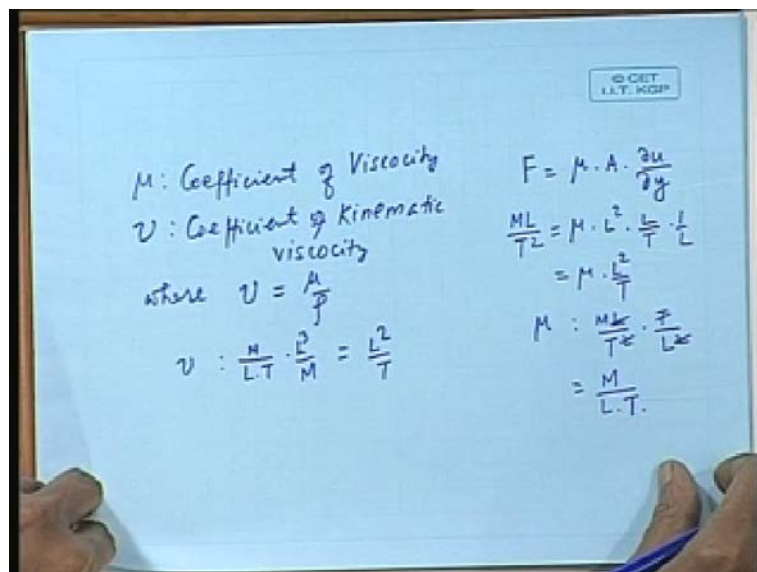 © CET
I.I.T. KGP
μ : Coefficient of Viscocity
υ : Coefficient of Kinematic
viscocity
where υ = μ/ρ
υ : M/L.T · L³/M = L²/T
F = μ · A · ∂u/∂y
ML/T² = μ · L² · L/T · 1/L
= μ · L²/T
μ : ML/T² · T/L²
= M/L.T.